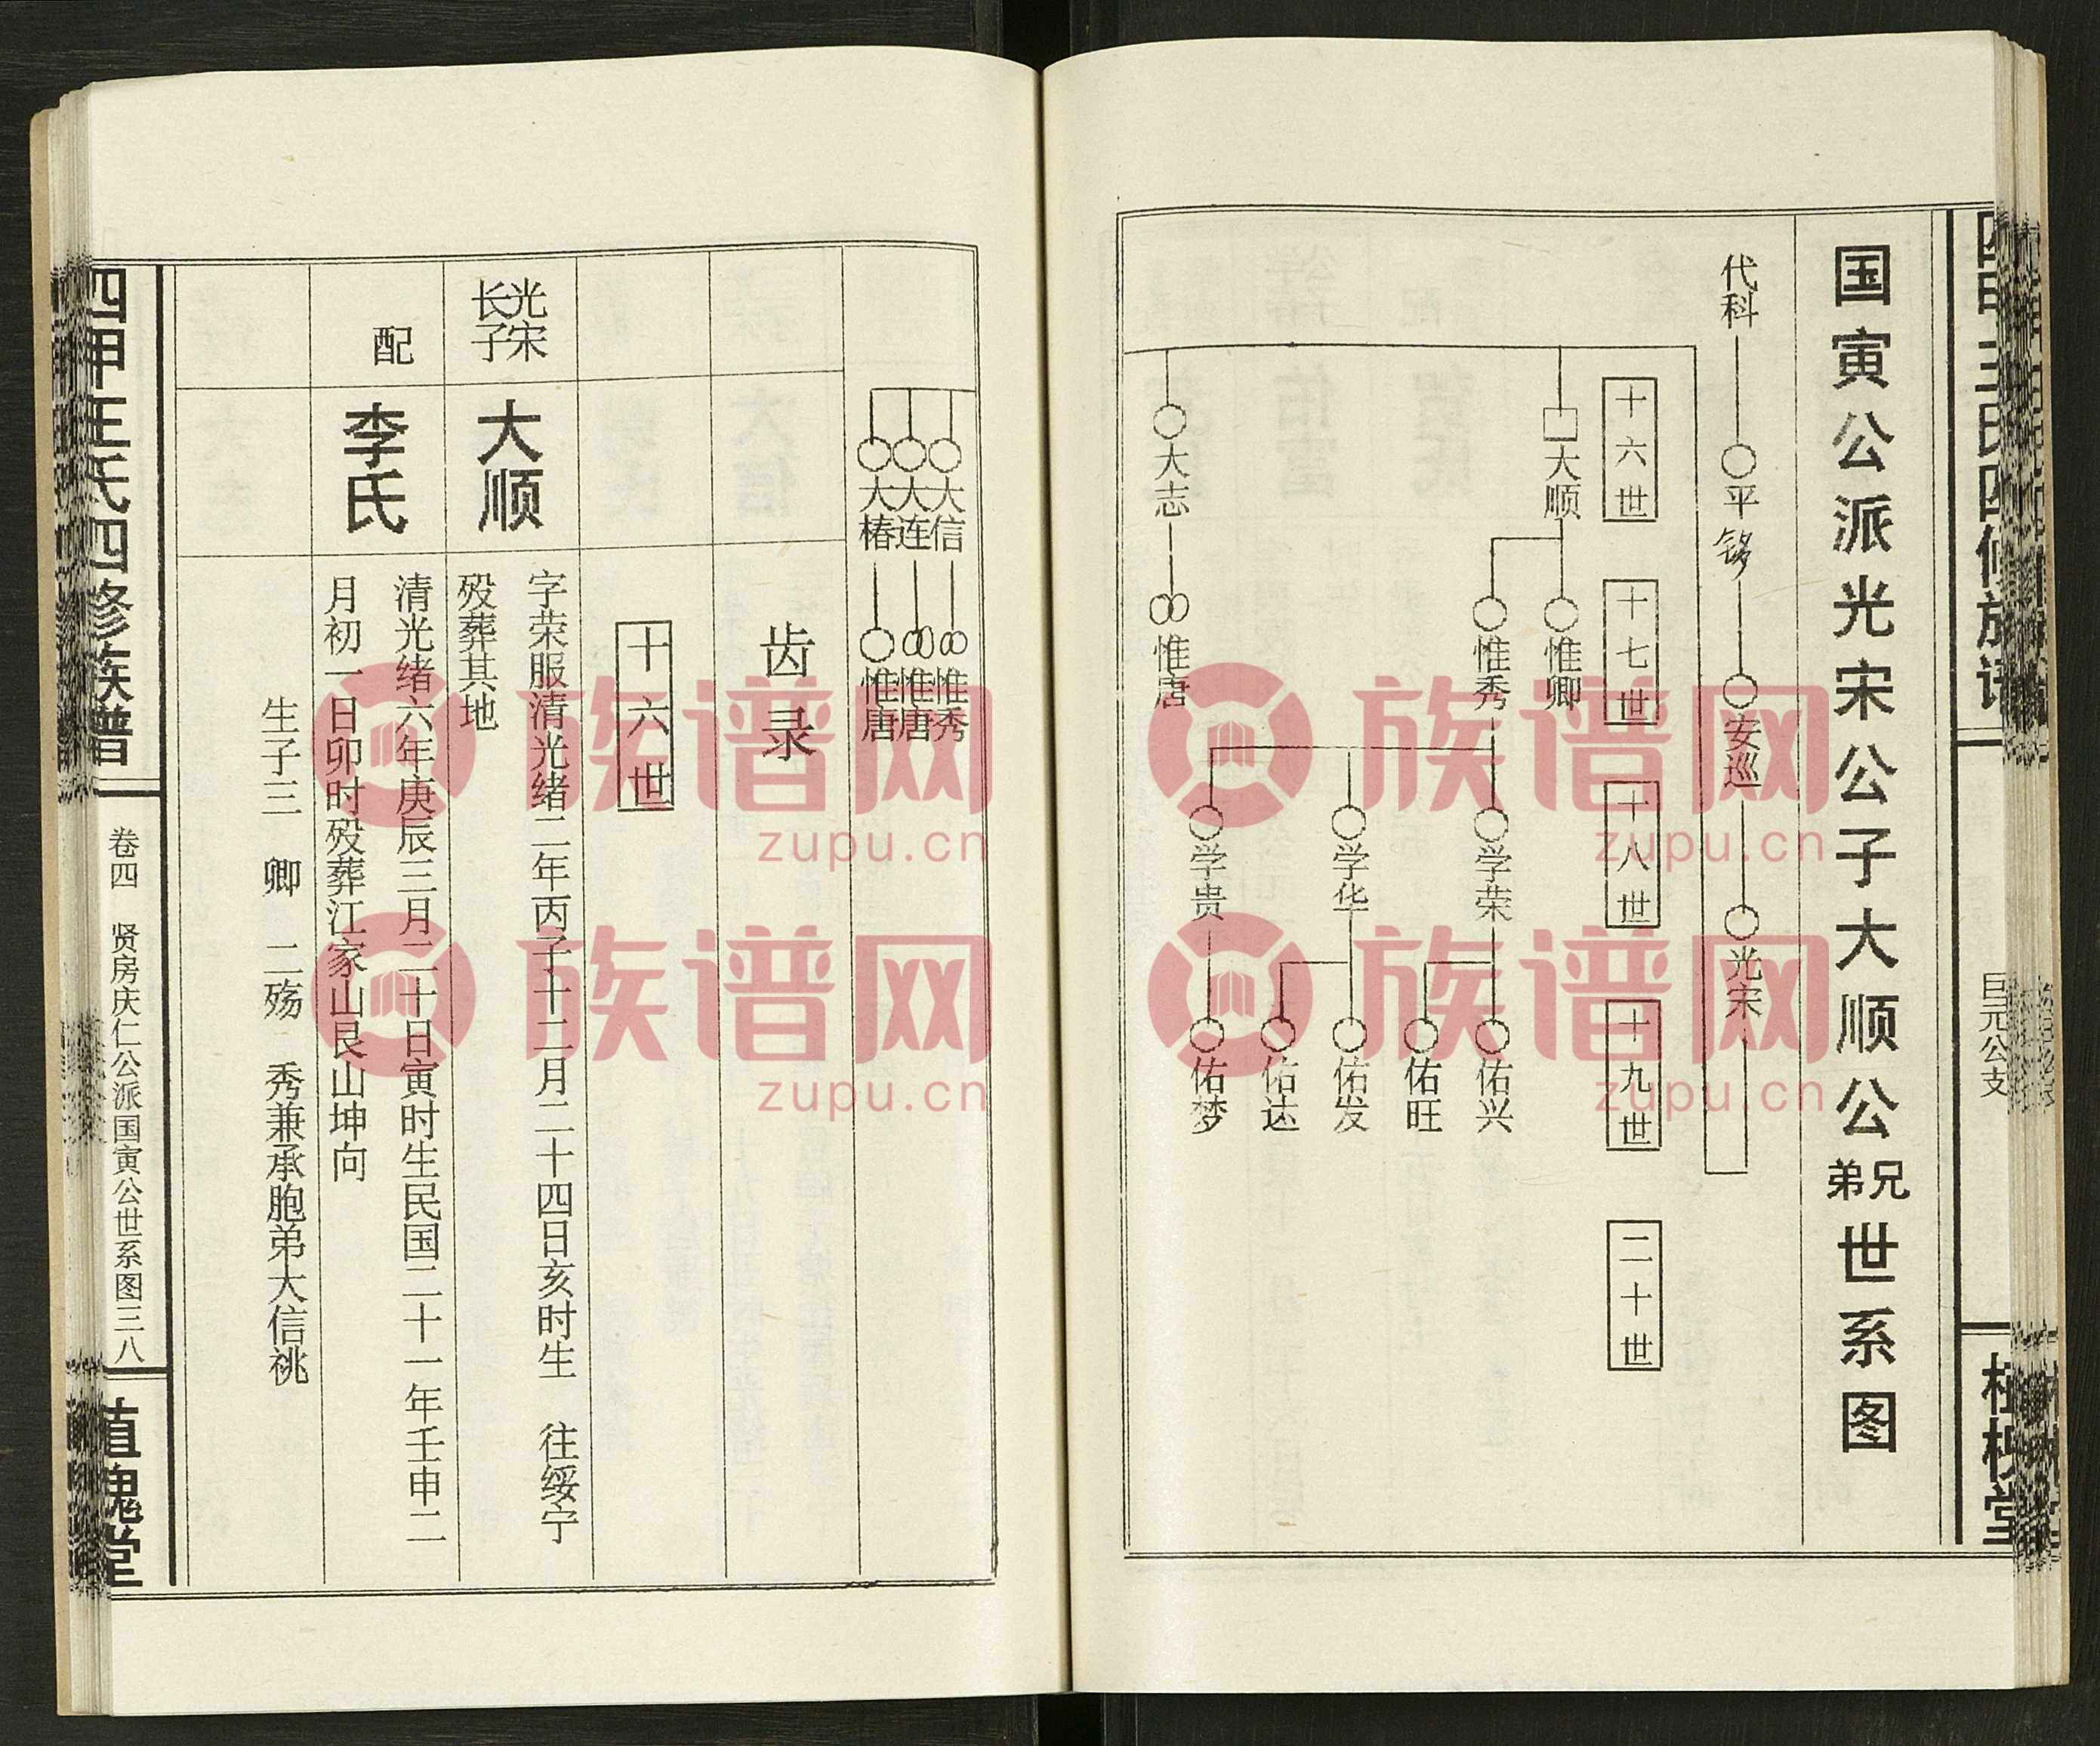 国寅公派光宋公子大顺公兄弟世系图
代科
平
安巡
光宋
十六世
十七世
十八世
十九世
二十世
大顺
惟卿
惟秀
学荣
学华
学贵
佑兴
佑旺
佑发
佑达
佑梦
大志
惟唐
巨元公支
大信
惟秀
大连
惟唐
大椿
惟唐
齿录
十六世
光宋长子
大顺
字荣服清光绪二年丙子十二月二十四日亥时生 往绥宁
殁葬其地
配
李氏
清光绪六年庚辰三月二十日寅时生民国二十一年壬申二
月初一日卯时殁葬江家山艮山坤向
生子三 卿 二殇 秀兼承胞弟大信祧
四甲王氏四修族谱
卷四 贤房庆仁公派国寅公世系图三八
植槐堂
族谱网
zupu.cn
族谱网
zupu.cn
族谱网
zupu.cn
族谱网
zupu.cn